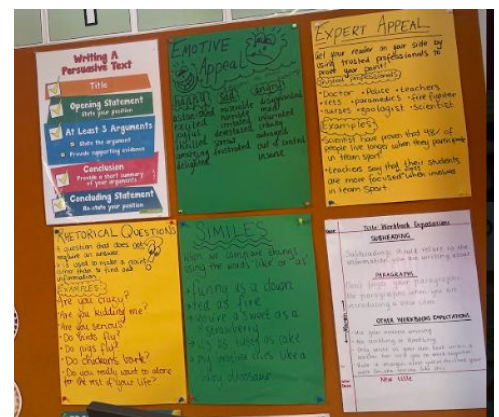 Writing A
Persuasive Text
Title
Opening Statement
State your position
At Least 3 Arguments
State the argument
Provide supporting evidence
Conclusion
Provide a short summary
of your arguments
Concluding Statement
Re-state your position
EMOTIVE
Appeal
happy
excited
thrilled
amazing
delighted
sad
miserable
devastated
sorrow
frustrated
angry
disappointed
mad
infuriated
outraged
out of control
insane
EXPERT APPEAL
Get your reader on your side by
using trusted professionals to
prove your point!
trusted professionals
Doctor • Police • teachers
vets • paramedics • fire fighter
nurses • Scientist
Examples
Scientist have proven that 98% of
people live longer when they participate
in team sport
teachers say that their students
are more focused when involves
in team sport
RHETORICAL QUESTIONS
A question that does not
require an answer.
It is used to make a point
rather than to find out
information
EXAMPLES:
Are you crazy?
Are you kidding me?
Are you serious?
Do birds fly?
Do pigs fly?
Do chickens bark?
Do you really want to alone
for the rest of your life?
SIMILES
When we compare things
using the words 'like' or "as"
funny as a clown
red as fire
you're a sweet as a
strawberry
as as tasty as cake
my mother dies like a
dinosaur
Workbook Expectations
SUBHEADING
Subheadings should relate to the
information you are writing about
PARAGRAPHS
your paragraphs
Do paragraphs when you are
introducing a new idea
OTHER WORKBOOK EXPECTATIONS
Use your neatest writing
No scribbling or
New title